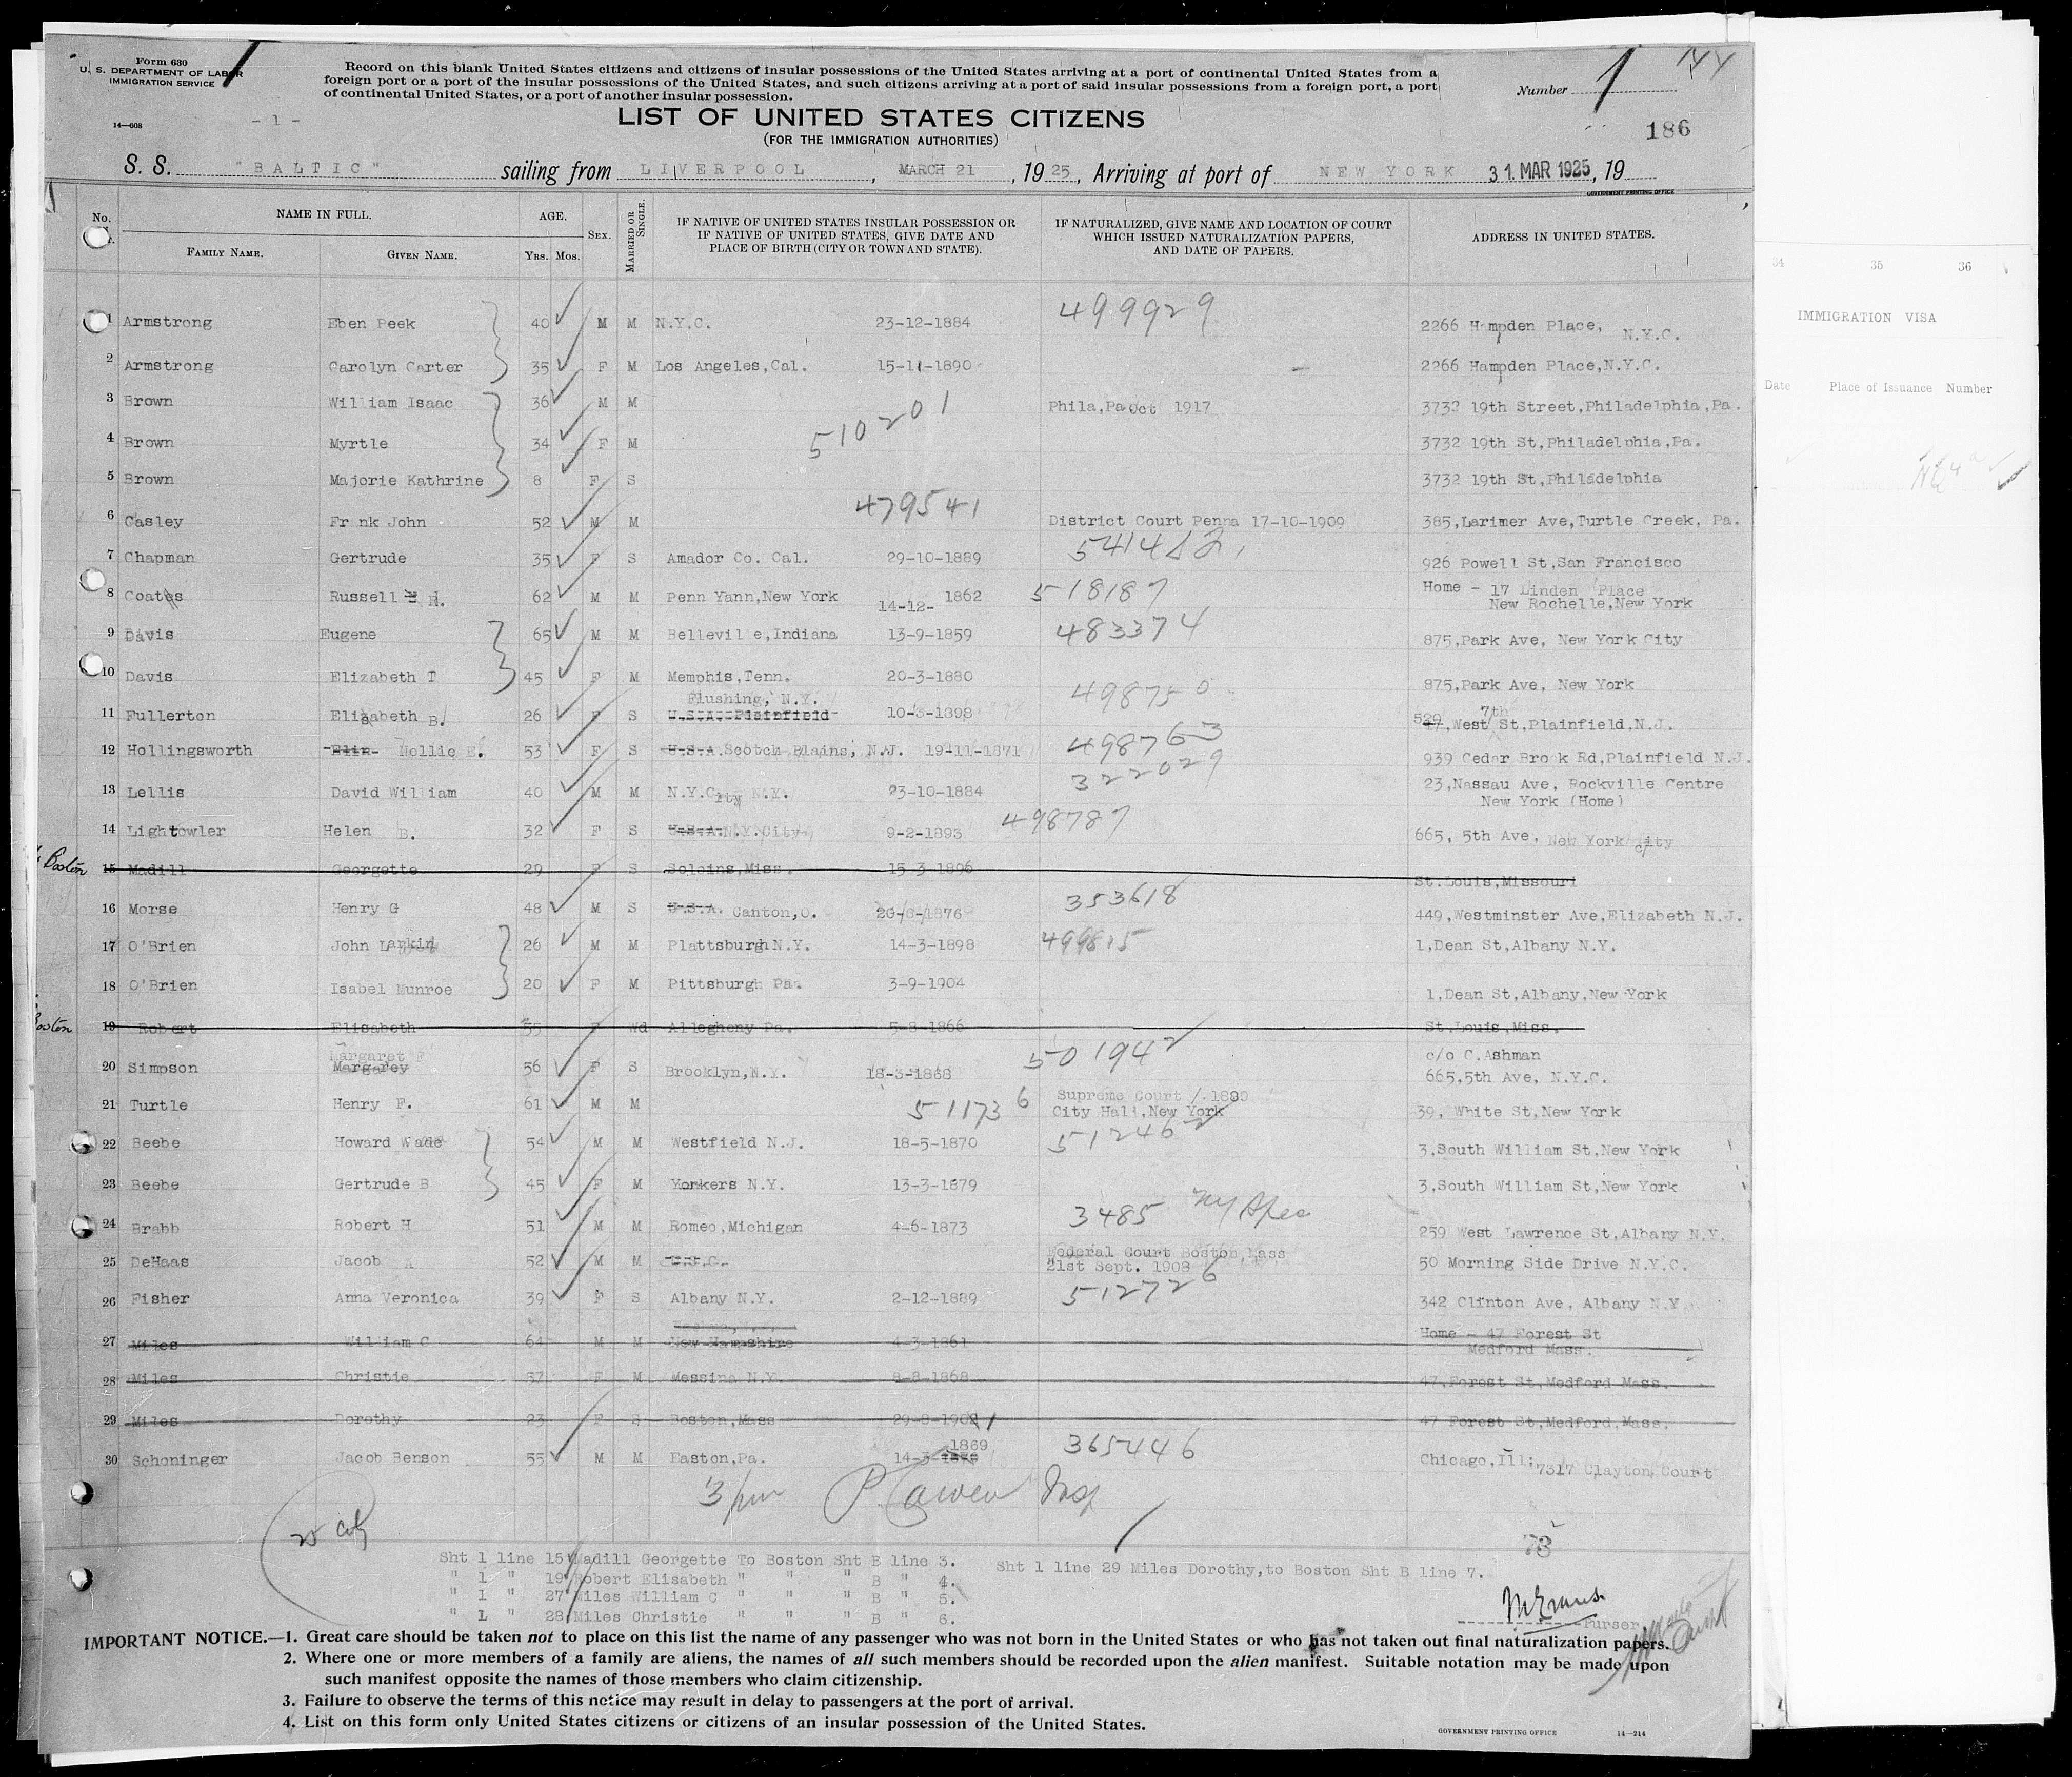 Form 630
U. S. DEPARTMENT OF LABOR
IMMIGRATION SERVICE
14—608
Record on this blank United States citizens and citizens of insular possessions of the United States arriving at a port of continental United States from a
foreign port or a port of the insular possessions of the United States, and such citizens arriving at a port of said insular possessions from a foreign port, a port
of continental United States, or a port of another insular possession.
Number 1
144
- 1 -
LIST OF UNITED STATES CITIZENS
(FOR THE IMMIGRATION AUTHORITIES)
186
S. S. "BALTIC" sailing from LIVERPOOL, MARCH 21, 1925, Arriving at port of NEW YORK 31. MAR 1925, 19
GOVERNMENT PRINTING OFFICE
No. NAME IN FULL. AGE. SEX. MARRIED OR SINGLE. IF NATIVE OF UNITED STATES INSULAR POSSESSION OR IF NATIVE OF UNITED STATES, GIVE DATE AND PLACE OF BIRTH (CITY OR TOWN AND STATE). IF NATURALIZED, GIVE NAME AND LOCATION OF COURT WHICH ISSUED NATURALIZATION PAPERS, AND DATE OF PAPERS. ADDRESS IN UNITED STATES.
FAMILY NAME. GIVEN NAME. Yrs. Mos.
34 35 36
IMMIGRATION VISA
Date Place of Issuance Number
1 Armstrong Eben Peek 40 M M N.Y.C. 23-12-1884 499929 2266 Hampden Place, N.Y.C.
2 Armstrong Carolyn Carter 35 F M Los Angeles,Cal. 15-11-1890 2266 Hampden Place,N.Y.C.
3 Brown William Isaac 36 M M Phila,Pa Oct 1917 3732 19th Street,Philadelphia,Pa.
4 Brown Myrtle 34 F M 510201 3732 19th St,Philadelphia,Pa.
5 Brown Majorie Kathrine 8 F S 3732 19th St,Philadelphia
6 Casley Fr nk John 52 M M 479541 District Court Penna 17-10-1909 385,Larimer Ave,Turtle Creek, Pa.
7 Chapman Gertrude 35 F S Amador Co. Cal. 29-10-1889 926 Powell St,San Francisco
8 Coates Russell H. 62 M M Penn Yann,New York 14-12- 1862 518187 Home - 17 Linden Place
New Rochelle,New York
9 Davis Eugene 65 M M Belleville,Indiana 13-9-1859 483374 875,Park Ave, New York City
10 Davis Elizabeth T 45 F M Memphis,Tenn. 20-3-1880 875,Park Ave, New York
Flushing, N.Y.
11 Fullerton Elisabeth B. 26 F S U.S.A. Plainfield 10-8-1898 498750 529 47,West 7th St,Plainfield.N.J.
12 Hollingsworth Elin Nellie E. 53 F S U.S.A Scotch Plains, N.J. 19-11-1871 498763 939 Cedar Brook Rd,Plainfield N.J.
13 Lellis David William 40 M M N.Y.City N.Y. 23-10-1884 322029 23,Nassau Ave, Rockville Centre
New York (Home)
14 Lightowler Helen B. 32 F S U.S.A. N.Y.City 9-2-1893 498787 665, 5th Ave, New York City
Boston 15 Madill Georgette 29 F S Soleins,Miss. 15-3-1896 St.Louis,Missouri
16 Morse Henry G 48 M S U.S.A. Canton,O. 26-6-1876 353618 449,Westminster Ave,Elizabeth N.J.
17 O'Brien John Larkin 26 M M Plattsburgh N.Y. 14-3-1898 499815 1,Dean St,Albany N.Y.
18 O'Brien Isabel Munroe 20 F M Pittsburgh Pa. 3-9-1904 1,Dean St,Albany,New York
Boston 19 Robert Elisabeth F Wd Allegheny Pa. 5-8-1866 St.Louis,Miss.
Margaret F c/o C.Ashman
20 Simpson Margarey 56 F S Brooklyn,N.Y. 18-3-1868 501942 665,5th Ave, N.Y.C.
21 Turtle Henry F. 61 M M 511736 Supreme Court / 1890
City Hall,New York 39, White St,New York
22 Beebe Howard Wade 54 M M Westfield N.J. 18-5-1870 512462 3,South William St,New York
23 Beebe Gertrude B 45 F M Yonkers N.Y. 13-3-1879 3,South William St,New York
24 Brabb Robert H 51 M M Romeo,Michigan 4-6-1873 3485 NY Spec 259 West Lawrence St,Albany N.Y.
25 DeHaas Jacob 52 M M Federal Court Boston,Mass
21st Sept. 1908 50 Morning Side Drive N.Y.C.
26 Fisher Anna Veronica 39 F S Albany N.Y. 2-12-1889 512726 342 Clinton Ave, Albany N.Y.
27 Miles William C 64 M M New Hampshire 4-3-1861 Home - 47 Forest St
Medford Mass.
28 Miles Christie 57 F M Messina N.Y. 8-8-1868 47,Forest St,Medford Mass.
29 Miles Dorothy 23 F S Boston,Mass 29-8-1901 47 Forest St,Medford,Mass.
1869
30 Schoninger Jacob Benson 55 M M Easton,Pa. 14-3- 365446 Chicago,Ill; 7317 Clayton Court
3/pm P. Cawen Insp
25 cit
Sht 1 line 15 Madill Georgette To Boston Sht B line 3. Sht 1 line 29 Miles Dorothy,to Boston Sht B line 7.
" 1 " 19 Robert Elisabeth " " " B " 4.
" 1 " 27 Miles William C " " " B " 5.
" L " 28 Miles Christie " " " B " 6.
Purser
IMPORTANT NOTICE.—1. Great care should be taken not to place on this list the name of any passenger who was not born in the United States or who has not taken out final naturalization papers.
2. Where one or more members of a family are aliens, the names of all such members should be recorded upon the alien manifest. Suitable notation may be made upon
such manifest opposite the names of those members who claim citizenship.
3. Failure to observe the terms of this notice may result in delay to passengers at the port of arrival.
4. List on this form only United States citizens or citizens of an insular possession of the United States.
GOVERNMENT PRINTING OFFICE 14—214